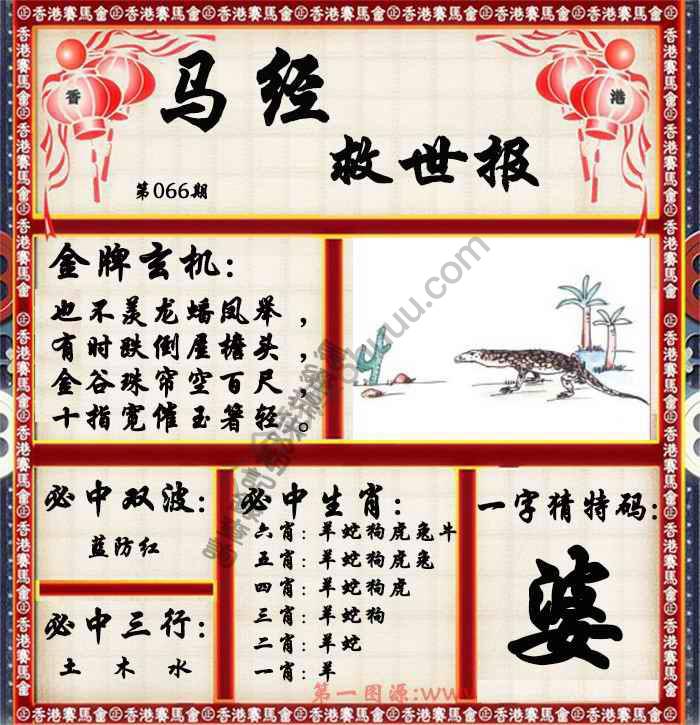 香港賽馬會㊣香港賽馬會㊣香港賽馬會㊣香港賽馬會㊣香港賽馬會㊣香港賽馬會㊣香港賽馬會
香
港
马经
救世报
第066期
金牌玄机：
也不羡龙蟠凤举，
有时跌倒屋檐头，
金谷珠帘空百尺，
十指宽催玉箸轻。
必中双波：
蓝防红
必中三行：
土 木 水
必中生肖：
六肖：羊蛇狗虎兔牛
五肖：羊蛇狗虎兔
四肖：羊蛇狗虎
三肖：羊蛇狗
二肖：羊蛇
一肖：羊
一字猜特码：
婆
第一图源:www